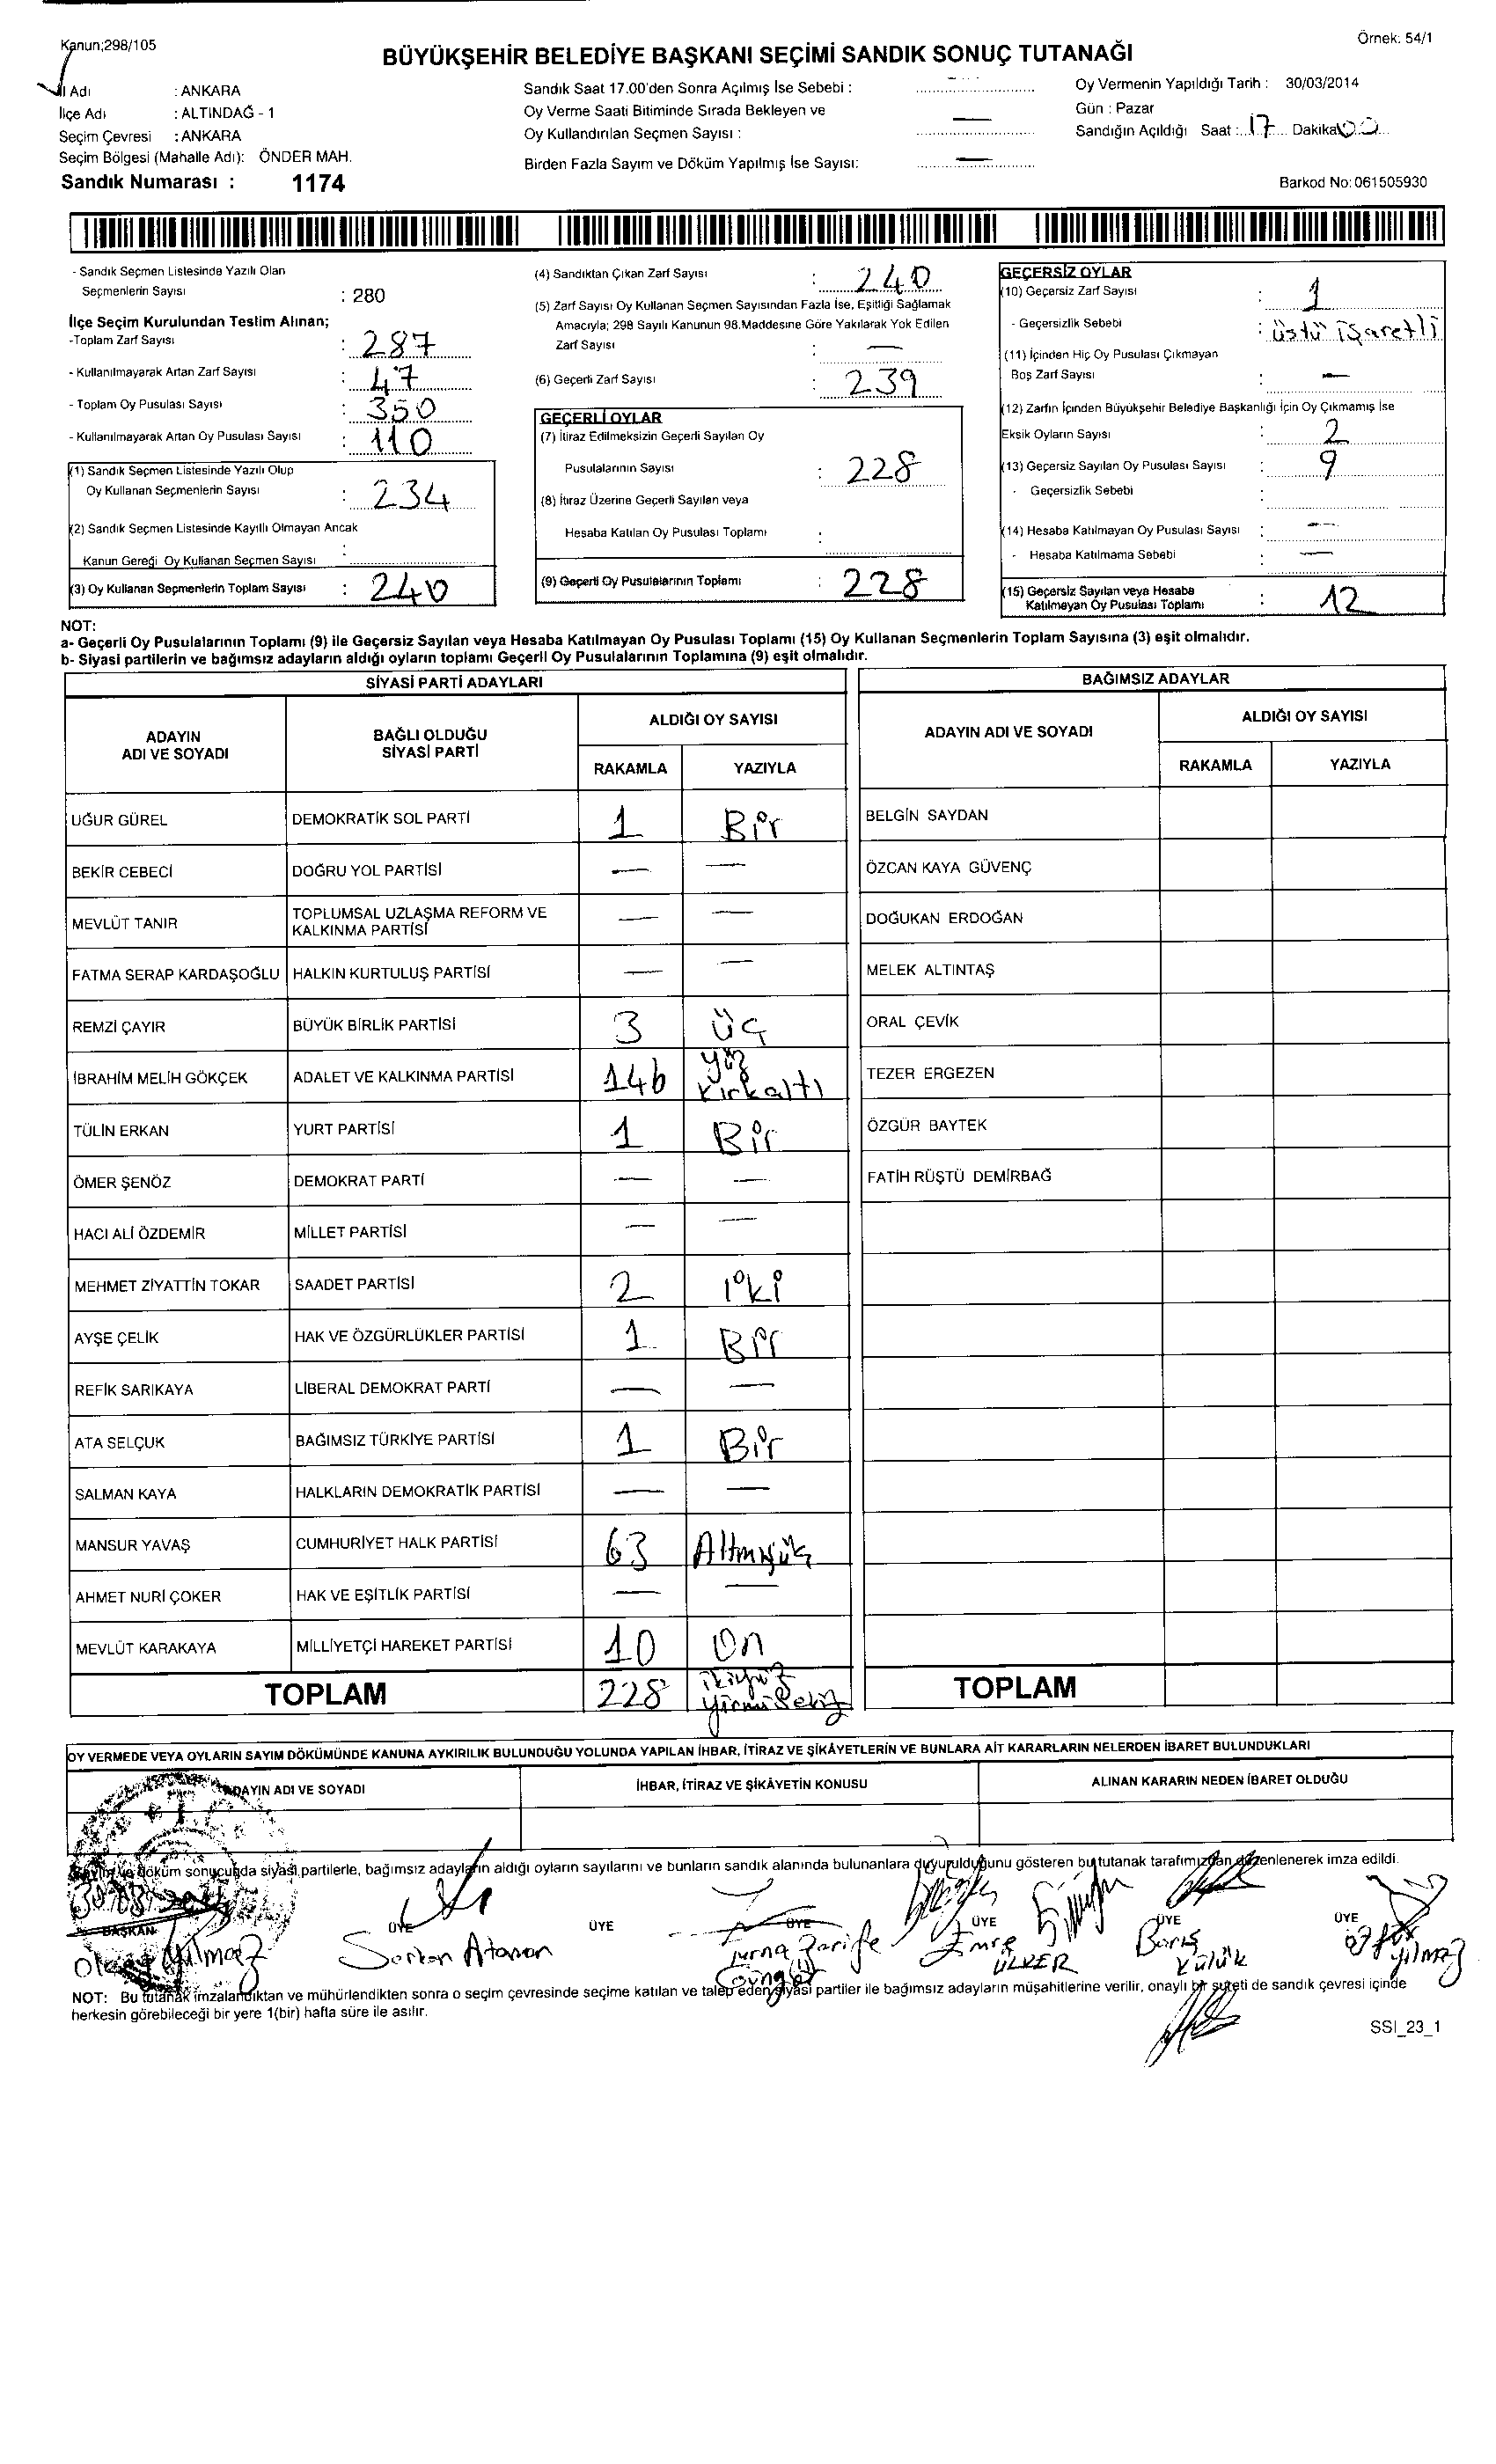 Kanun;298/105
Örnek: 54/1
BÜYÜKŞEHİR BELEDİYE BAŞKANI SEÇİMİ SANDIK SONUÇ TUTANAĞI
İl Adı : ANKARA
İlçe Adı : ALTINDAĞ - 1
Seçim Çevresi : ANKARA
Seçim Bölgesi (Mahalle Adı): ÖNDER MAH.
Sandık Numarası : 1174
Sandık Saat 17.00'den Sonra Açılmış İse Sebebi :
Oy Verme Saati Bitiminde Sırada Bekleyen ve
Oy Kullandırılan Seçmen Sayısı : —
Birden Fazla Sayım ve Döküm Yapılmış İse Sayısı: —
Oy Vermenin Yapıldığı Tarih : 30/03/2014
Gün : Pazar
Sandığın Açıldığı Saat : 17 Dakika 00
Barkod No: 061505930
- Sandık Seçmen Listesinde Yazılı Olan
Seçmenlerin Sayısı : 280
İlçe Seçim Kurulundan Teslim Alınan;
-Toplam Zarf Sayısı : 287
- Kullanılmayarak Artan Zarf Sayısı : 47
- Toplam Oy Pusulası Sayısı : 350
- Kullanılmayarak Artan Oy Pusulası Sayısı : 110
(1) Sandık Seçmen Listesinde Yazılı Olup
Oy Kullanan Seçmenlerin Sayısı : 234
(2) Sandık Seçmen Listesinde Kayıtlı Olmayan Ancak
Kanun Gereği Oy Kullanan Seçmen Sayısı :
(3) Oy Kullanan Seçmenlerin Toplam Sayısı : 240
(4) Sandıktan Çıkan Zarf Sayısı : 240
(5) Zarf Sayısı Oy Kullanan Seçmen Sayısından Fazla İse, Eşitliği Sağlamak
Amacıyla; 298 Sayılı Kanunun 98.Maddesine Göre Yakılarak Yok Edilen
Zarf Sayısı : —
(6) Geçerli Zarf Sayısı : 239
GEÇERLİ OYLAR
(7) İtiraz Edilmeksizin Geçerli Sayılan Oy
Pusulalarının Sayısı : 228
(8) İtiraz Üzerine Geçerli Sayılan veya
Hesaba Katılan Oy Pusulası Toplamı :
(9) Geçerli Oy Pusulalarının Toplamı : 228
GEÇERSİZ OYLAR
(10) Geçersiz Zarf Sayısı : 1
- Geçersizlik Sebebi : üstü işaretli
(11) İçinden Hiç Oy Pusulası Çıkmayan
Boş Zarf Sayısı : —
(12) Zarfın İçinden Büyükşehir Belediye Başkanlığı İçin Oy Çıkmamış İse
Eksik Oyların Sayısı : 2
(13) Geçersiz Sayılan Oy Pusulası Sayısı : 9
- Geçersizlik Sebebi :
(14) Hesaba Katılmayan Oy Pusulası Sayısı : —
- Hesaba Katılmama Sebebi : —
(15) Geçersiz Sayılan veya Hesaba
Katılmayan Oy Pusulası Toplamı : 12
NOT:
a- Geçerli Oy Pusulalarının Toplamı (9) ile Geçersiz Sayılan veya Hesaba Katılmayan Oy Pusulası Toplamı (15) Oy Kullanan Seçmenlerin Toplam Sayısına (3) eşit olmalıdır.
b- Siyasi partilerin ve bağımsız adayların aldığı oyların toplamı Geçerli Oy Pusulalarının Toplamına (9) eşit olmalıdır.
SİYASİ PARTİ ADAYLARI
ADAYIN ADI VE SOYADI BAĞLI OLDUĞU SİYASİ PARTİ ALDIĞI OY SAYISI
RAKAMLA YAZIYLA
UĞUR GÜREL DEMOKRATİK SOL PARTİ 1 Bir
BEKİR CEBECİ DOĞRU YOL PARTİSİ — —
MEVLÜT TANIR TOPLUMSAL UZLAŞMA REFORM VE KALKINMA PARTİSİ — —
FATMA SERAP KARDAŞOĞLU HALKIN KURTULUŞ PARTİSİ — —
REMZİ ÇAYIR BÜYÜK BİRLİK PARTİSİ 3 üç
İBRAHİM MELİH GÖKÇEK ADALET VE KALKINMA PARTİSİ 146 yüz kırkaltı
TÜLİN ERKAN YURT PARTİSİ 1 Bir
ÖMER ŞENÖZ DEMOKRAT PARTİ — —
HACI ALİ ÖZDEMİR MİLLET PARTİSİ — —
MEHMET ZİYATTİN TOKAR SAADET PARTİSİ 2 iki
AYŞE ÇELİK HAK VE ÖZGÜRLÜKLER PARTİSİ 1 Bir
REFİK SARIKAYA LİBERAL DEMOKRAT PARTİ — —
ATA SELÇUK BAĞIMSIZ TÜRKİYE PARTİSİ 1 Bir
SALMAN KAYA HALKLARIN DEMOKRATİK PARTİSİ — —
MANSUR YAVAŞ CUMHURİYET HALK PARTİSİ 63 Altmışüç
AHMET NURİ ÇOKER HAK VE EŞİTLİK PARTİSİ — —
MEVLÜT KARAKAYA MİLLİYETÇİ HAREKET PARTİSİ 10 on
TOPLAM 228 ikiyüz yirmisekiz
BAĞIMSIZ ADAYLAR
ADAYIN ADI VE SOYADI ALDIĞI OY SAYISI
RAKAMLA YAZIYLA
BELGİN SAYDAN
ÖZCAN KAYA GÜVENÇ
DOĞUKAN ERDOĞAN
MELEK ALTINTAŞ
ORAL ÇEVİK
TEZER ERGEZEN
ÖZGÜR BAYTEK
FATİH RÜŞTÜ DEMİRBAĞ
TOPLAM
OY VERMEDE VEYA OYLARIN SAYIM DÖKÜMÜNDE KANUNA AYKIRILIK BULUNDUĞU YOLUNDA YAPILAN İHBAR, İTİRAZ VE ŞİKÂYETLERİN VE BUNLARA AİT KARARLARIN NELERDEN İBARET BULUNDUKLARI
ADAYIN ADI VE SOYADI İHBAR, İTİRAZ VE ŞİKÂYETİN KONUSU ALINAN KARARIN NEDEN İBARET OLDUĞU
Sayım ve döküm sonucunda siyasi partilerle, bağımsız adayların aldığı oyların sayılarını ve bunların sandık alanında bulunanlara duyurulduğunu gösteren bu tutanak tarafımızdan düzenlenerek imza edildi.
BAŞKAN ÜYE ÜYE ÜYE ÜYE ÜYE ÜYE
Yılmaz Serkan Zarife Emre ÜLKER Barış Külük Yılmaz
NOT: Bu tutanak imzalandıktan ve mühürlendikten sonra o seçim çevresinde seçime katılan ve talep eden siyasi partiler ile bağımsız adayların müşahitlerine verilir, onaylı bir sureti de sandık çevresi içinde
herkesin görebileceği bir yere 1(bir) hafta süre ile asılır.
SSI_23_1